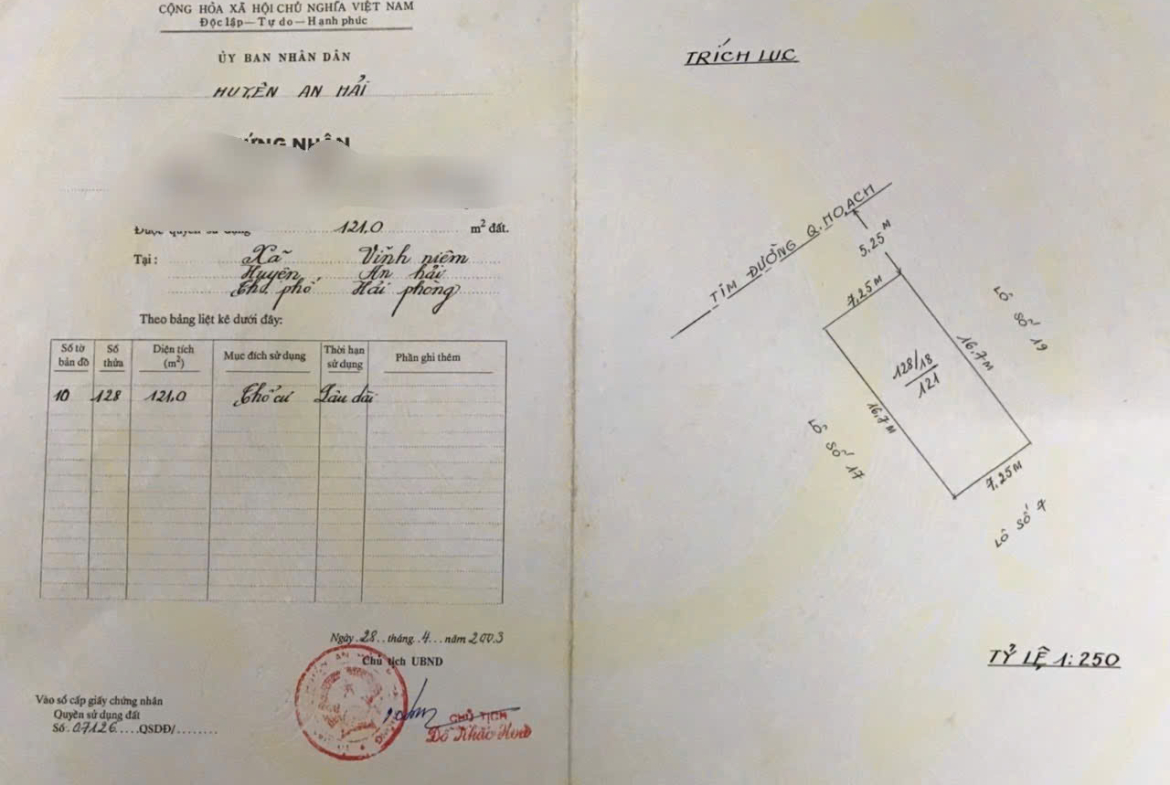 CỘNG HÒA XÃ HỘI CHỦ NGHĨA VIỆT NAM
Độc lập — Tự do — Hạnh phúc
ỦY BAN NHÂN DÂN
HUYỆN AN HẢI
Được quyền sử dụng 121,0 m² đất.
Tại: Xã Vĩnh niệm
Huyện An hải
Thành phố Hải phòng
Theo bảng liệt kê dưới đây:
Số tờ bản đồ Số thửa Diện tích (m²) Mục đích sử dụng Thời hạn sử dụng Phần ghi thêm
10 128 121,0 Thổ cư Lâu dài
Ngày 28 tháng 4 năm 2003
Chủ tịch UBND
CHỦ TỊCH
Vào sổ cấp giấy chứng nhận
Quyền sử dụng đất
Số 07126 QSDĐ/
TRÍCH LỤC
TIM ĐƯỜNG Q. HOẠCH
5.25 M
7,25 M
16,7 M
128/18
121
16,7 M
7,25 M
LÔ SỐ 19
LÔ SỐ 17
LÔ SỐ 7
TỶ LỆ 1:250